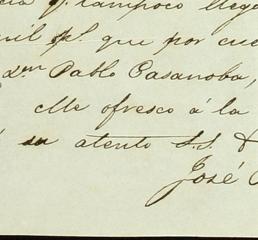 tampoco llega
mil ps. que por cue
dn. Pablo Casanoba,
Me ofresco á la
su atento S.S.
José